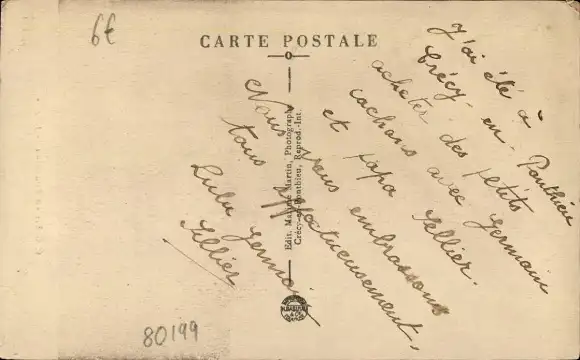 6€
CARTE POSTALE
J'ai été à
Crécy-en-Ponthieu
acheter des petits
cochons avec Germain
et papa Sellier.
Nous vous embrassons
tous affectueusement.
Lulu Germain
Sellier
Edit. Maxime Martin, Photographe
Crécy-en-Ponthieu, Reprod. Int.
80199